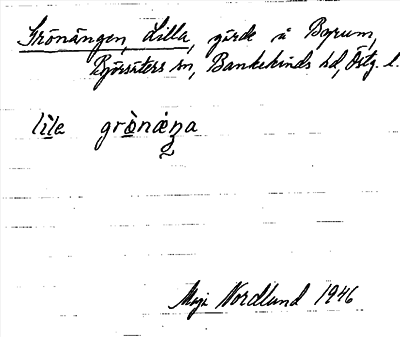 Grönängen, Lilla, gärde å Byrum,
Björsäters sn, Bankekinds hd, Östg. l.
lìle grònæ̀ṇa
2
Maja Nordlund 1946